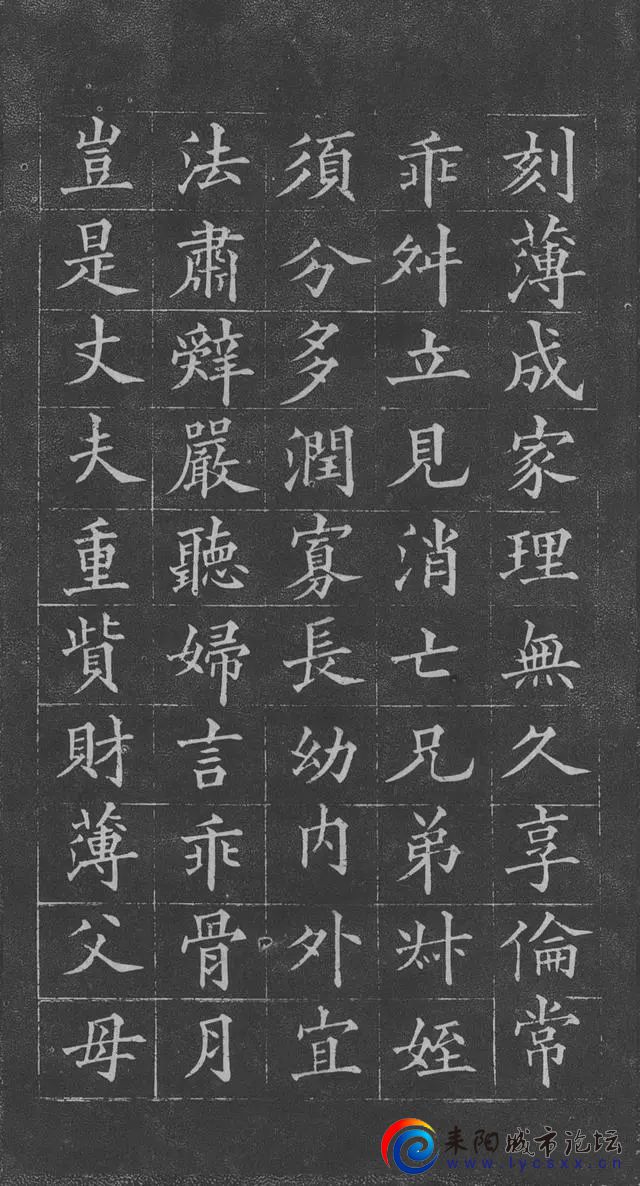 刻薄成家理無久享倫常
乖舛立見消亡兄弟叔姪
須分多潤寡長幼内外宜
法肅辭嚴聽婦言乖骨月
豈是丈夫重貲財薄父母
耒阳城市论坛
www.lycsxx.cn